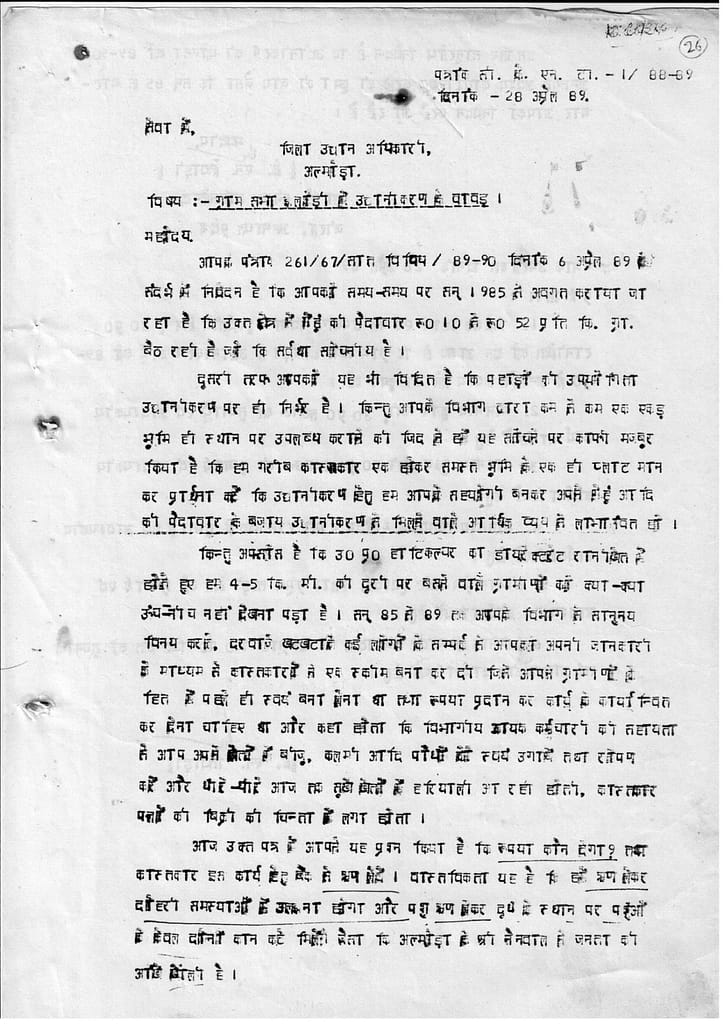 26
पत्रांक ती. के. एन. टी. -1/ 88-89
दिनांक -28 अप्रैल 89.
सेवा में,
जिला उद्यान अधिकारी,
अल्मोड़ा.
विषय :- ग्राम सभा में उद्यानीकरण के बावद ।
महोदय,
आपके पत्रांक 261/67/सात विविध/ 89-90 दिनांक 6 अप्रैल 89 के
संदर्भ में निवेदन है कि आपको समय-समय पर सन् 1985 से अवगत कराया जा
रहा है कि उक्त क्षेत्र में गेहूं की पैदावार रू0 10 से रू0 52 प्रति कि. ग्रा.
बैठ रही है जो कि सर्वथा सोचनीय है ।
दूसरी तरफ आपको यह भी विदित है कि पहाड़ों की उपयोगिता
उद्यानीकरण पर ही निर्भर है । किन्तु आपके विभाग द्वारा कम से कम एक एकड़
भूमि ही स्थान पर उपलब्ध कराने की जिद ने हमें यह सोचने पर काफी मजबूर
किया है कि हम गरीब कास्तकार एक होकर समस्त भूमि के एक ही प्लाट मान
कर प्रार्थना करें कि उद्यानीकरण हेतु हम आपके सहयोगी बनकर अपने गेहूं आदि
की पैदावार के बजाय उद्यानीकरण से मिलने वाले आर्थिक व्यय से लाभान्वित हों ।
किन्तु अफसोस है कि उ0 प्र0 हार्टिकल्चर का डायरेक्टरेट रानीखेत में
होते हुए हम 4-5 कि. मी. की दूरी पर बसने वाले ग्रामीणों को क्या-क्या
ऊंच-नीच नहीं देखना पड़ा है । सन् 85 से 89 तक आपके विभाग से सानुनय
विनय करते, दरवाजे खटखटाते कई लोगों के सम्पर्क से आपको अपनी जानकारी
के माध्यम से कास्तकारों ने एक स्कीम बना कर दी जिसे आपने ग्रामीणों के
हित में पहले ही स्वयं बना लेना था तथा रूपया प्रदान कर कार्य के कार्यान्वित
कर देना चाहिए था और कहा होता कि विभागीय सहायक कर्मचारी की सहायता
से आप अपने खेतों में बीजू, कलमी आदि पौधों को स्वयं उगायें तथा रोपण
करें और धीरे-धीरे आज तक सूखे खेतों में हरियाली आ रही होती, कास्तकार
फलों की बिक्री की चिन्ता में लगा होता ।
आज उक्त पत्र में आपने यह प्रश्न किया है कि रूपया कौन देगा? तथा
कास्तकार इस कार्य हेतु बैंक से ऋण लेवें । वास्तविकता यह है कि हमें ऋण लेकर
दोहरी समस्याओं में उलझना होगा और पशु ऋण लेकर दूध के स्थान पर पशुओं
के केवल दोनों कान कटे मिलेंगे जैसा कि अल्मोड़ा के श्री नैनवाल ने जनता की
आंखें खोली है ।